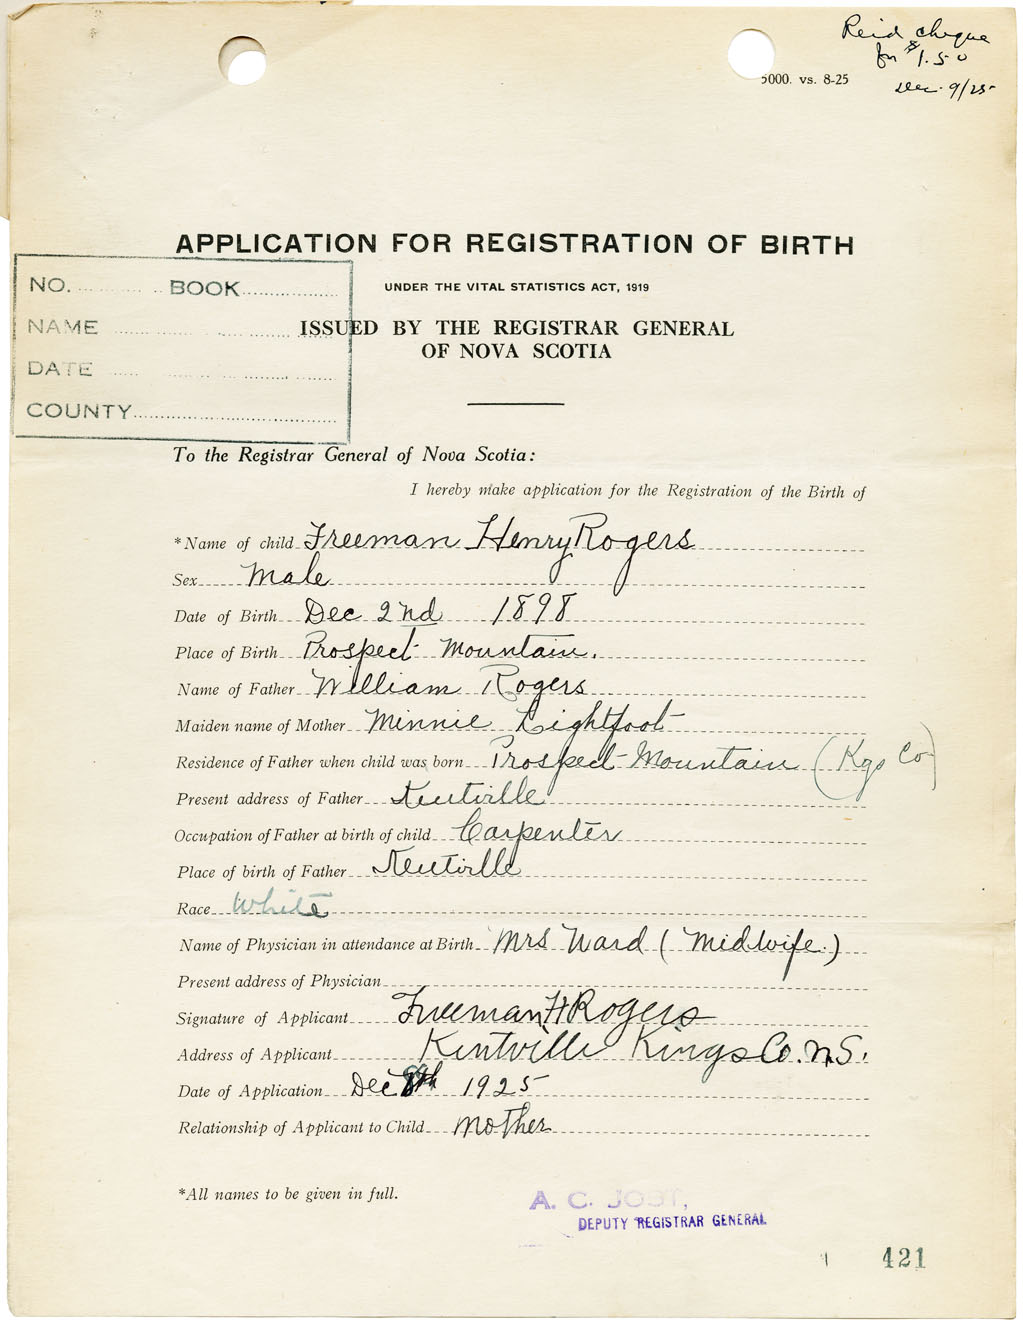 Rec'd cheque
for $1.50
Dec. 9/25
5000. vs. 8-25
APPLICATION FOR REGISTRATION OF BIRTH
UNDER THE VITAL STATISTICS ACT, 1919
ISSUED BY THE REGISTRAR GENERAL
OF NOVA SCOTIA
NO. BOOK
NAME
DATE
COUNTY
To the Registrar General of Nova Scotia:
I hereby make application for the Registration of the Birth of
*Name of child Freeman Henry Rogers
Sex Male
Date of Birth Dec 2nd 1898
Place of Birth Prospect Mountain.
Name of Father William Rogers
Maiden name of Mother Minnie Lightfoot
Residence of Father when child was born Prospect Mountain (Kgs Co)
Present address of Father Kentville
Occupation of Father at birth of child Carpenter
Place of birth of Father Kentville
Race White
Name of Physician in attendance at Birth Mrs Ward (Midwife.)
Present address of Physician
Signature of Applicant Freeman H Rogers
Address of Applicant Kentville Kings Co. N.S.
Date of Application Dec 8th 1925
Relationship of Applicant to Child Mother
*All names to be given in full.
A. C. JOST,
DEPUTY REGISTRAR GENERAL
421